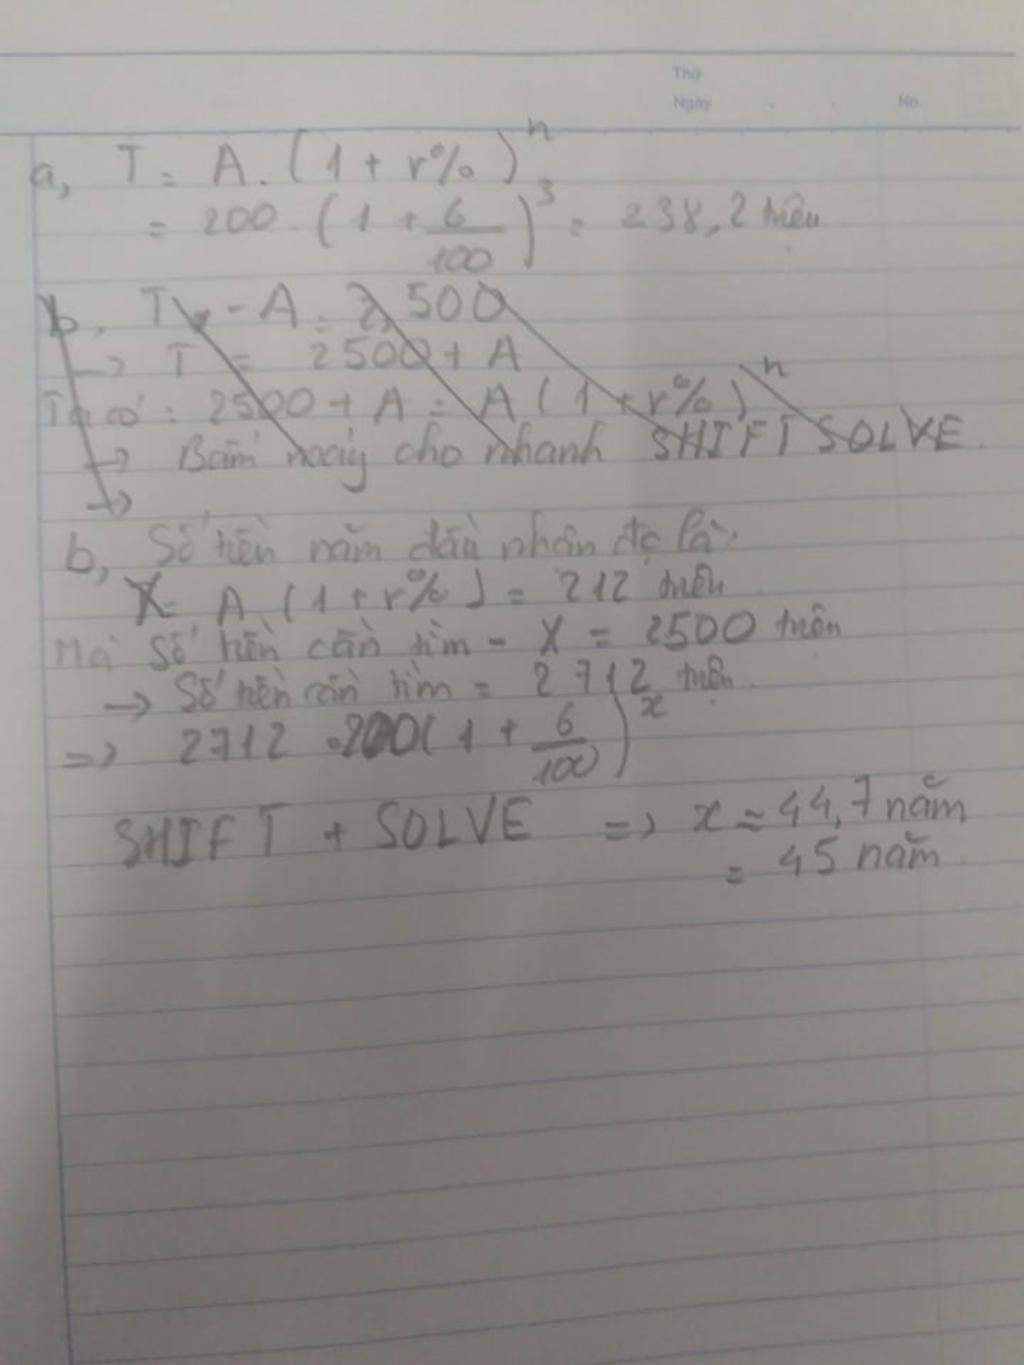 Thứ
Ngày No.
a, T = A. (1 + r%)^n
= 200 (1 + 6/100)^3 = 238,2 triệu
b. T - A = 2,500
→ T = 2500 + A
Ta có: 2500 + A = A (1 + r%)^n
→ Bấm máy cho nhanh SHIFT SOLVE.
→
b, Số tiền năm đầu nhận đc là:
X = A (1 + r%) = 212 triệu
Mà số tiền cần tìm - X = 2500 triệu
→ Số tiền cần tìm = 2712 triệu.
=> 2712 = 200 (1 + 6/100)^x
SHIFT + SOLVE => x ≈ 44,7 năm
= 45 năm